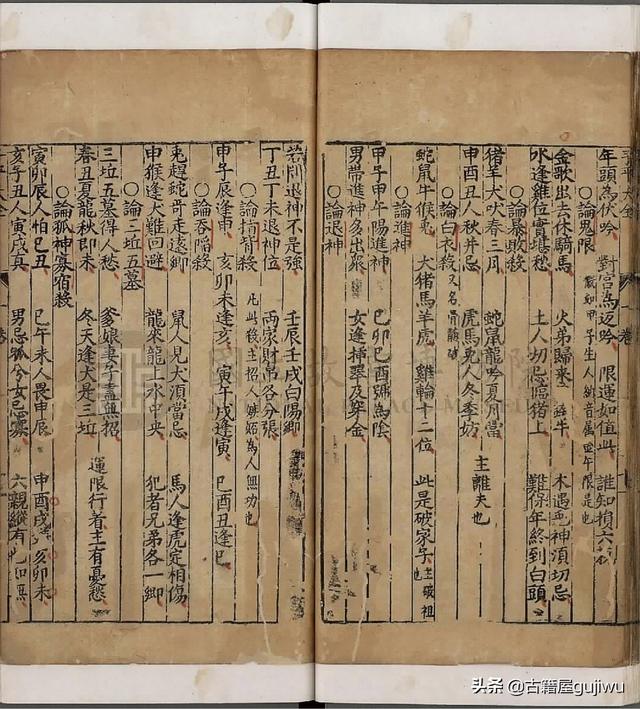 年頭為伏吟 對宮為返吟 限運如值此 誰知損六
○論鬼限 假如甲子生人納音屬金午限是也
金歌出去休騎馬 火弟歸來 牽牛 木遇 神湏切忌
水逢雞位實堪愁 土人切忌臨猪上 難保年終到白頭
○論暴敗殺
猪羊犬吠春三月 蛇鼠龍吟夏月當
申酉丑人秋并忌 虎馬兔人冬季妨 主離夫也
○論白衣殺 又名骨髓破
蛇鼠牛猴兔 犬猪馬羊虎 雞輪十二位 此是破家子 主破祖也
○論進神
甲子甲午陽進神 己卯己酉號為陰
男當進神多出眾 女逢挿翠及穿金
○論退神
若則退神不是強 壬辰壬戌白陽鄉
丁丑丁未退神位 兩家財帛各分張
○論指背殺 此後主招人嫉妬為人無功也
申子辰逢申 亥卯未逢亥 寅午戌逢寅 巳酉丑逢巳
○論吞陷殺
兎趕蛇奇走遠鄉 鼠人見犬湏當忌 馬人逢虎定相傷
申猴逢犬難回避 龍來龍上水中央 犯者兄弟各一鄉
○論三坵五墓
三坵五墓得人愁 爹娘妻子盡無招 運限行着主有憂愁
春丑夏龍秋即未 冬天逢犬是三坵
○論孤神寡宿殺
寅卯辰人怕巳丑 巳午未人畏申辰 申酉戌 亥卯未
亥子丑人寅戌真 男忌孤兮女忌寡 六親縱有也如無
头条 @古籍屋gujiwu